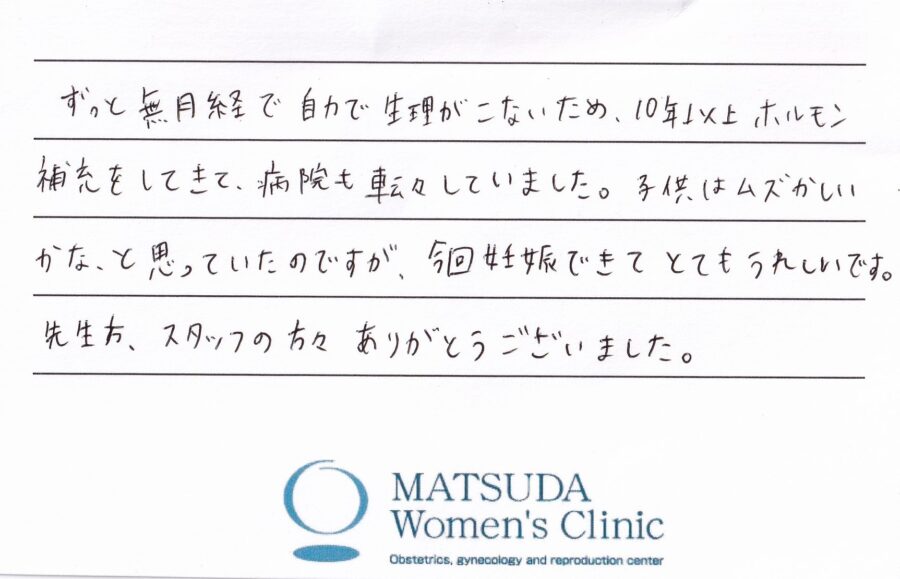 ずっと無月経で自力で生理がこないため、10年以上ホルモン
補充をしてきて、病院も転々していました。子供はムズかしい
かな、と思っていたのですが、今回妊娠できてとてもうれしいです。
先生方、スタッフの方々ありがとうございました。
MATSUDA
Women's Clinic
Obstetrics, gynecology and reproduction center